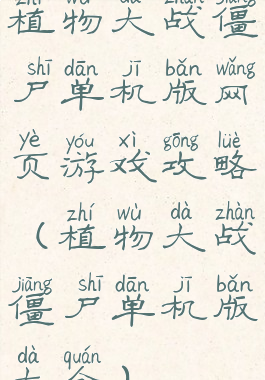 植物大战僵
shī dān jī bǎn wǎng
尸单机版网
yè yóu xì gōng lüè
页游戏攻略
zhí wù dà zhàn
（植物大战
jiāng shī dān jī bǎn
僵尸单机版
dà quán
大全）